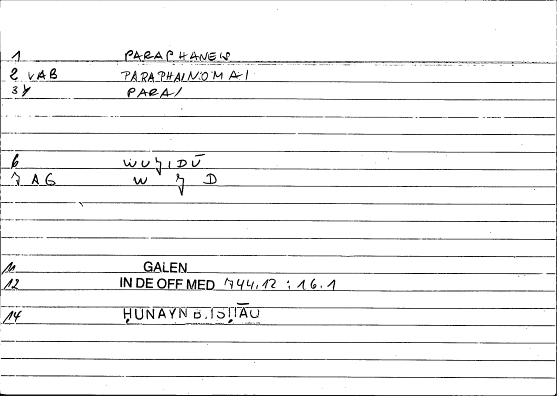 1 PARAPHANEIS
2 VAB PARAPHAINOMAI
3 Y PARA/
6 WUǧIDŪ
7 AG W ǧ D
11 GALEN
12 IN DE OFF MED 744.12 : 16.1
14 ḤUNAYN B. ISḤĀQ